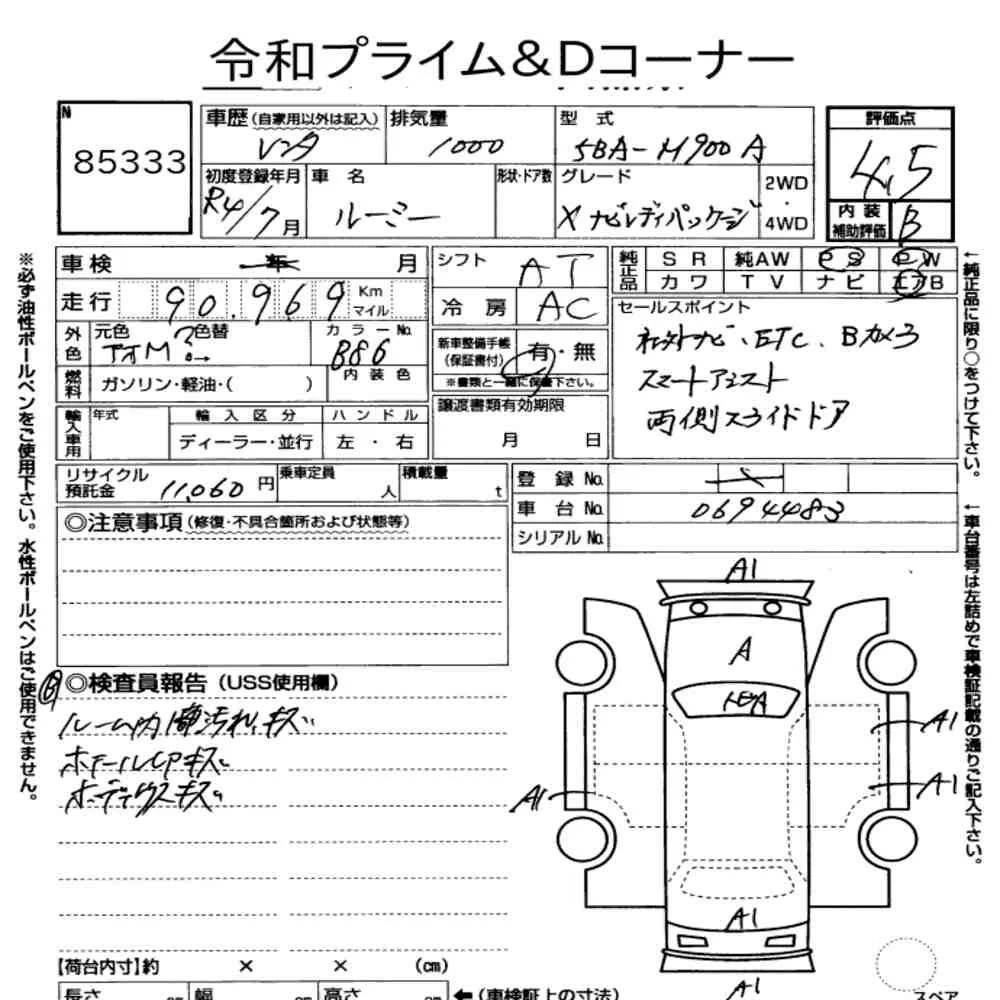 令和プライム&Dコーナー
N
85333
車歴(自家用以外は記入)
レンタ
排気量
1000
型 式
5BA-M900A
評価点
4.5
初度登録年月
R4/7月
車 名
ルーミー
形状・ドア数
グレード
X ナビレディパッケージ
2WD
・
4WD
内 装
補助評価
B
車検 年 月
シフト
AT
純正品
SR 純AW PS PW
カワ TV ナビ エアB
走行 90.969 Km
マイル
冷 房
AC
セールスポイント
社外ナビ、ETC、Bカメラ
スマートアシスト
両側スライドドア
外色
元色
色替
カラーNo.
B86
新車整備手帳
(保証書付)
有・無
※書類と一緒に保管下さい。
燃料
ガソリン・軽油・( )
内装色
輸入車用
年式
輸入区分
ハンドル
ディーラー・並行
左 ・ 右
譲渡書類有効期限
月 日
リサイクル
預託金
11,060円
乗車定員
人
積載量
t
登 録 No.
車 台 No.
0694483
シリアル No.
◎注意事項(修復・不具合箇所および状態等)
◎検査員報告(USS使用欄)
B
ルーム内 汚れ、キズ
ホイールCPキズ
ボディウスキズ
A1
A
A1
A1
A1
A1
A1
【荷台内寸】約 × × (cm)
長さ cm 幅 cm 高さ cm ←(車検証上の寸法)
スペア
※必ず油性ボールペンをご使用下さい。水性ボールペンはご使用できません。
←純正品に限り○をつけて下さい。
←車台番号は左詰めで車検証記載の通りご記入下さい。